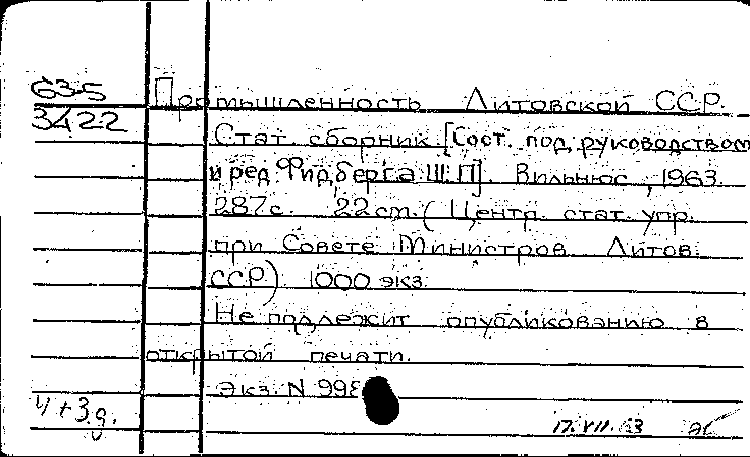 63-5
3422
Промышленность Литовской ССР.
Стат. сборник. [Сост. под руководством
и ред. Фидберга Ш.П]. Вильнюс, 1963.
287с. 22 см. (Центр. стат. упр.
при Совете Министров Литов.
ССР) 1000 экз.
Не подлежит опубликованию в
открытой печати.
Экз. N 998
4+3д.
17.VII.63